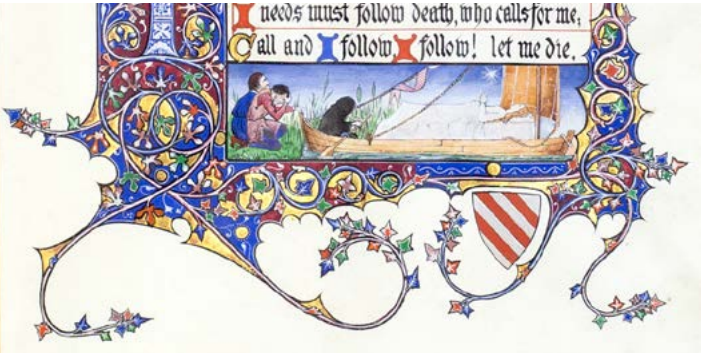 I needs must follow death, who calls for me;
Call and I follow I follow! let me die.